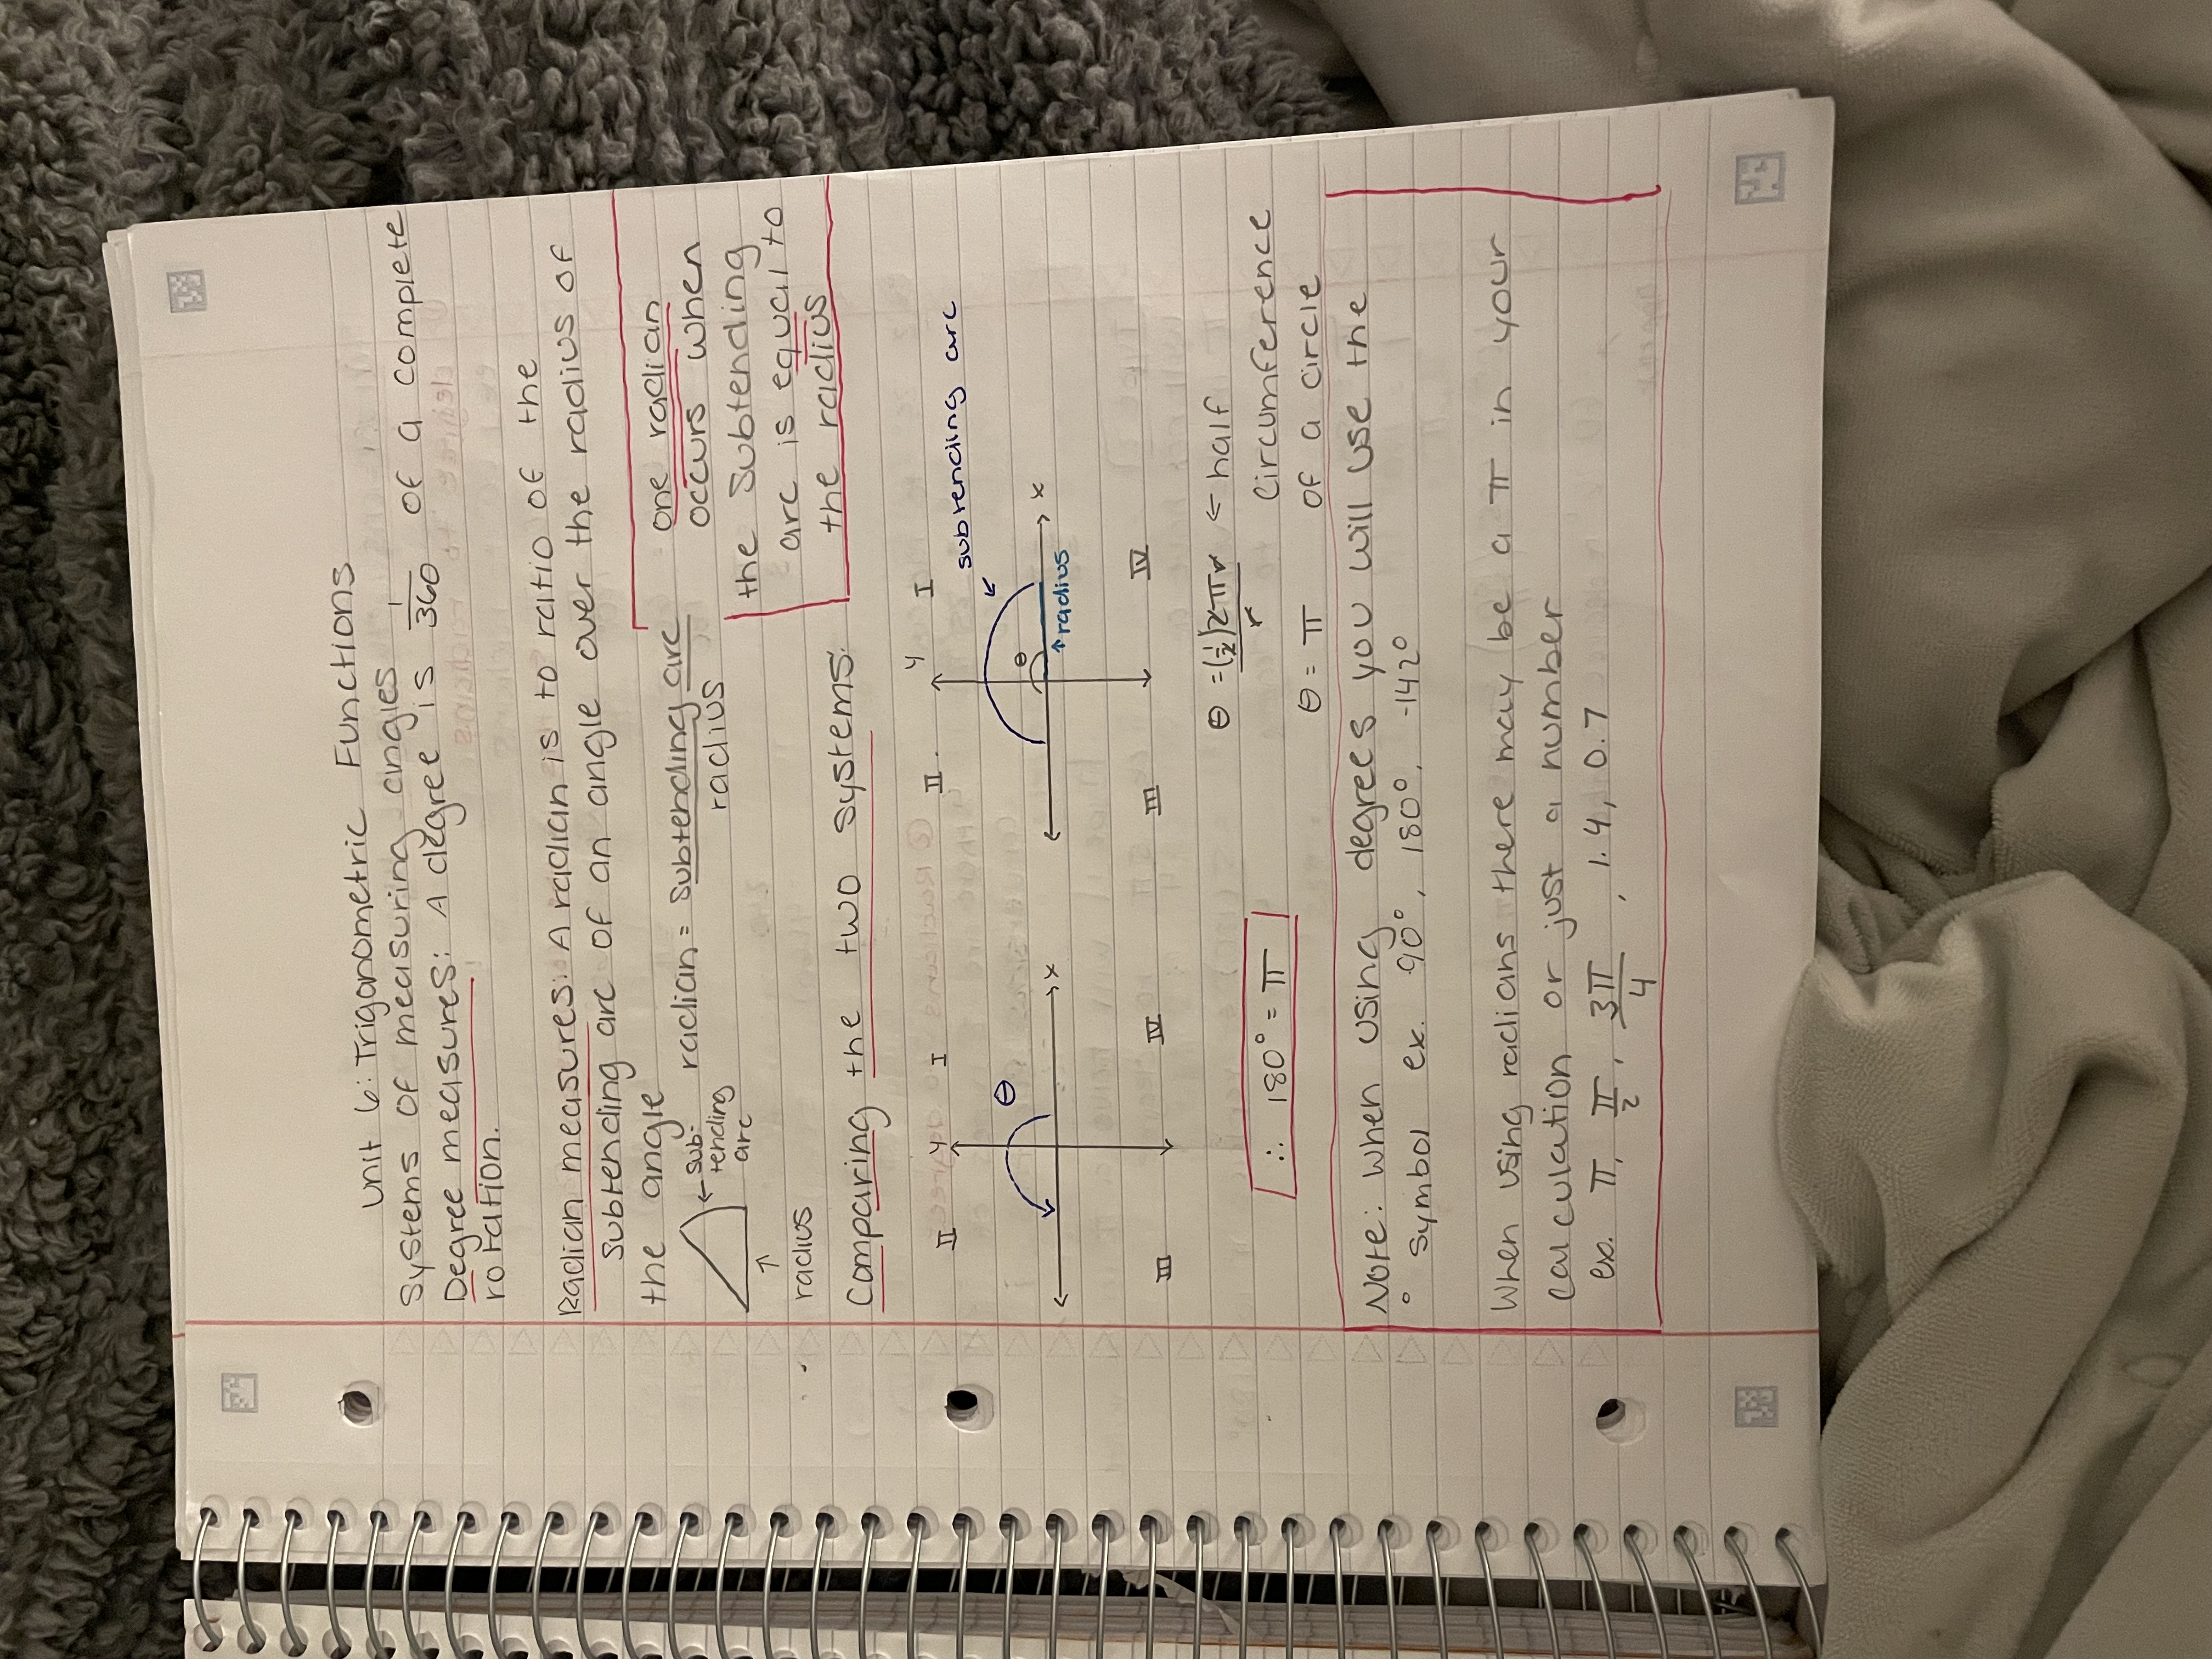 Unit 6: Trigonometric Functions
Systems of measuring angles
Degree measures: A degree is 1/360 of a complete
rotation.
Radian measures: A radian is to ratio of the
subtending arc of an angle over the radius of
the angle
radian = subtending arc / radius
← sub-
tending
arc
↑
radius
one radian
occurs when
the subtending
arc is equal to
the radius
Comparing the two systems:
II y I
θ
x
III IV
II y I
subtending arc
θ
x
↑radius
III IV
θ = (1/2)2πr / r ← half
circumference
θ = π of a circle
∴ 180° = π
Note: when using degrees you will use the
° symbol ex. 90°, 180°, -142°
When using radians there may be a π in your
calculation or just a number
ex. π, π/2, 3π/4, 1.4, 0.7